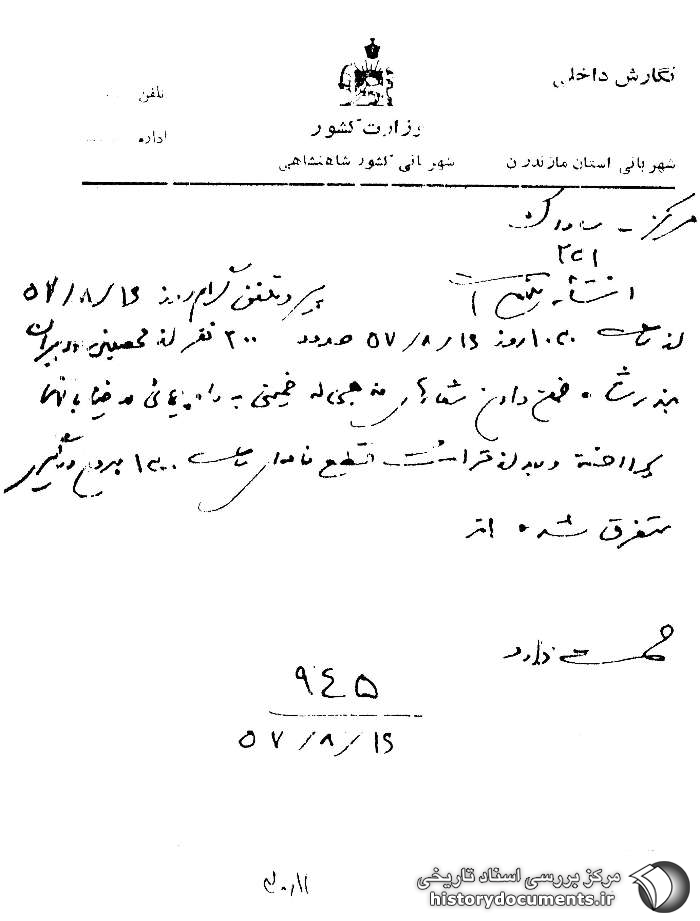 نگارش داخلی
تلفن
اداره
وزارت کشور
شهربانی استان مازندران
شهربانی کشور شاهنشاهی
مرکز - ساواک
پیرو تلفنگرام روز ۵۷/۸/۱۶
از ساعت ۱۰۳۰ روز ۵۷/۸/۱۶ حدود ۲۰۰ نفر از محصلین دبیران
بندرشاه ضمن دادن شعارهای مذهبی له خمینی به راهپیمائی در خیابانها
پرداخته و بعد از قرائت قطع نامه‌ای ساعت ۱۲۰۰ بدون درگیری
متفرق شده اند
۹۴۵
۵۷/۸/۱۶
مرکز بررسی اسناد تاریخی
historydocuments.ir